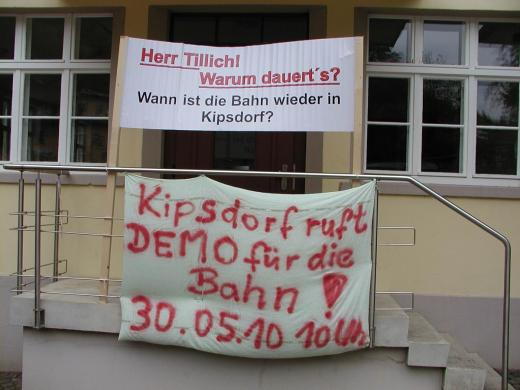 Herr Tillich!
Warum dauert´s?
Wann ist die Bahn wieder in
Kipsdorf?
Kipsdorf ruft
DEMO für die
Bahn !
30.05.10 10 Uhr